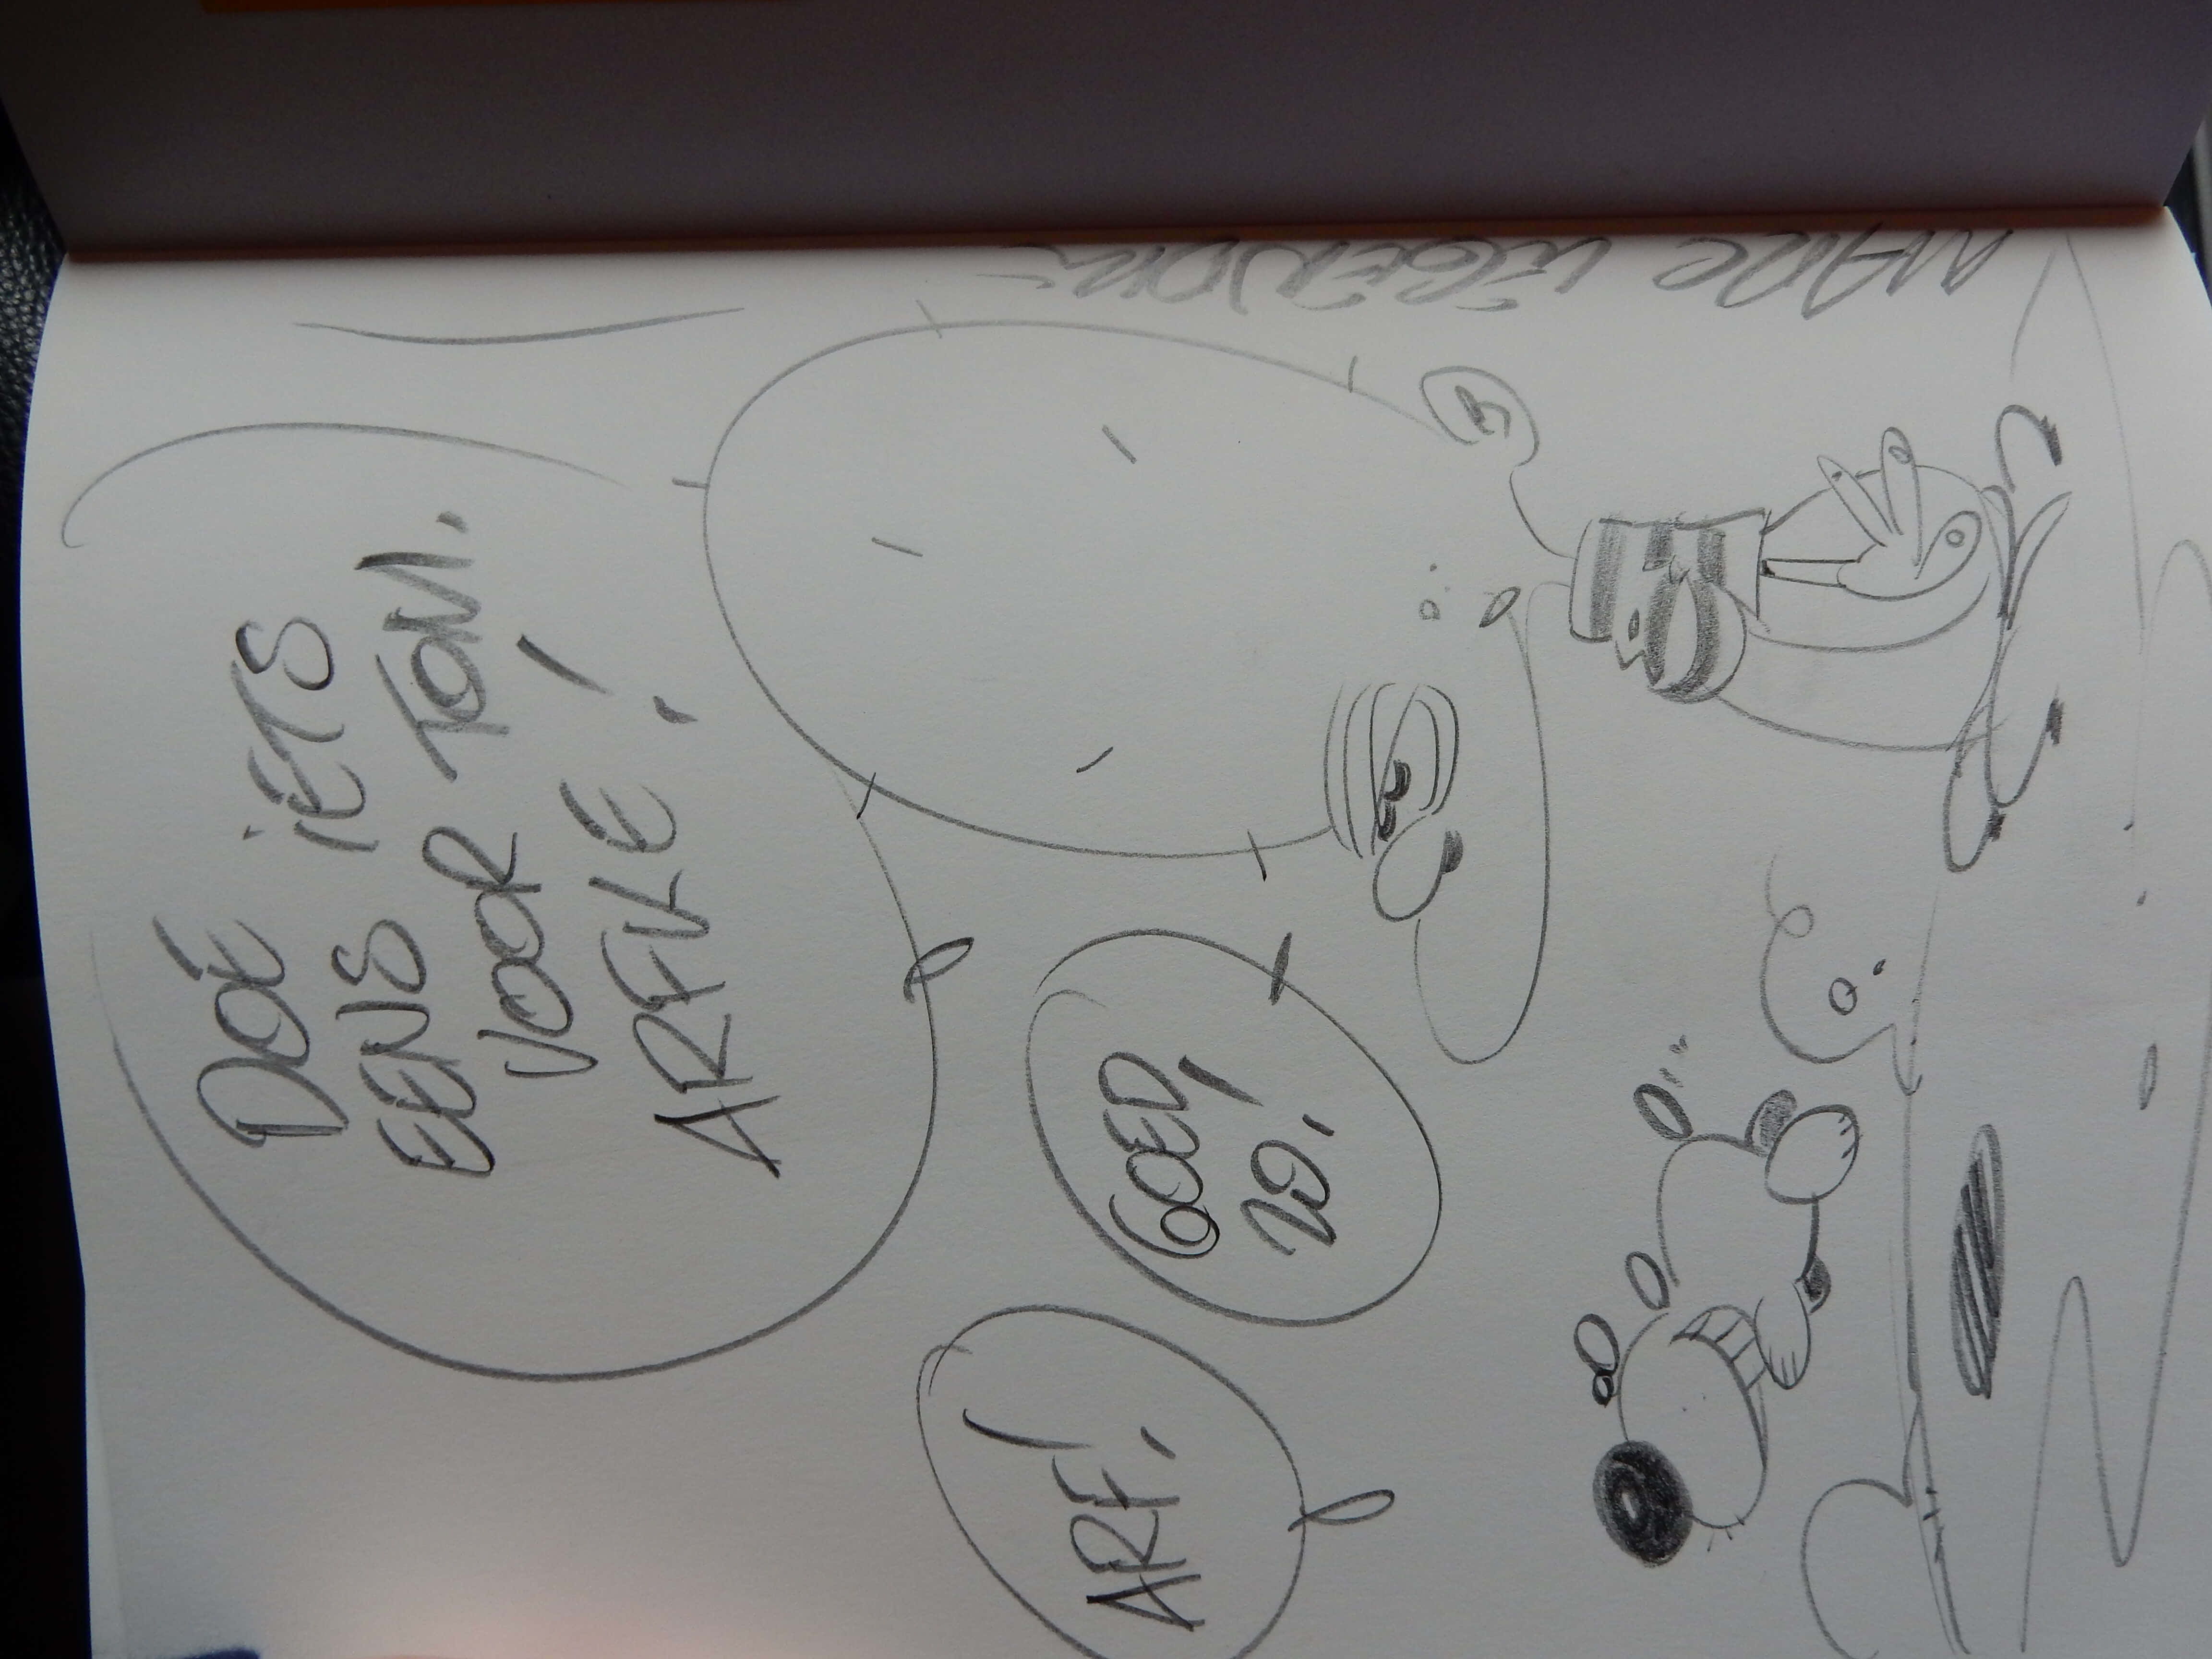 DOE
EENS iETS
VOOR TOM.
ARFKE!
ARF!
GOED,
ZO!
MARC LEGENDRE